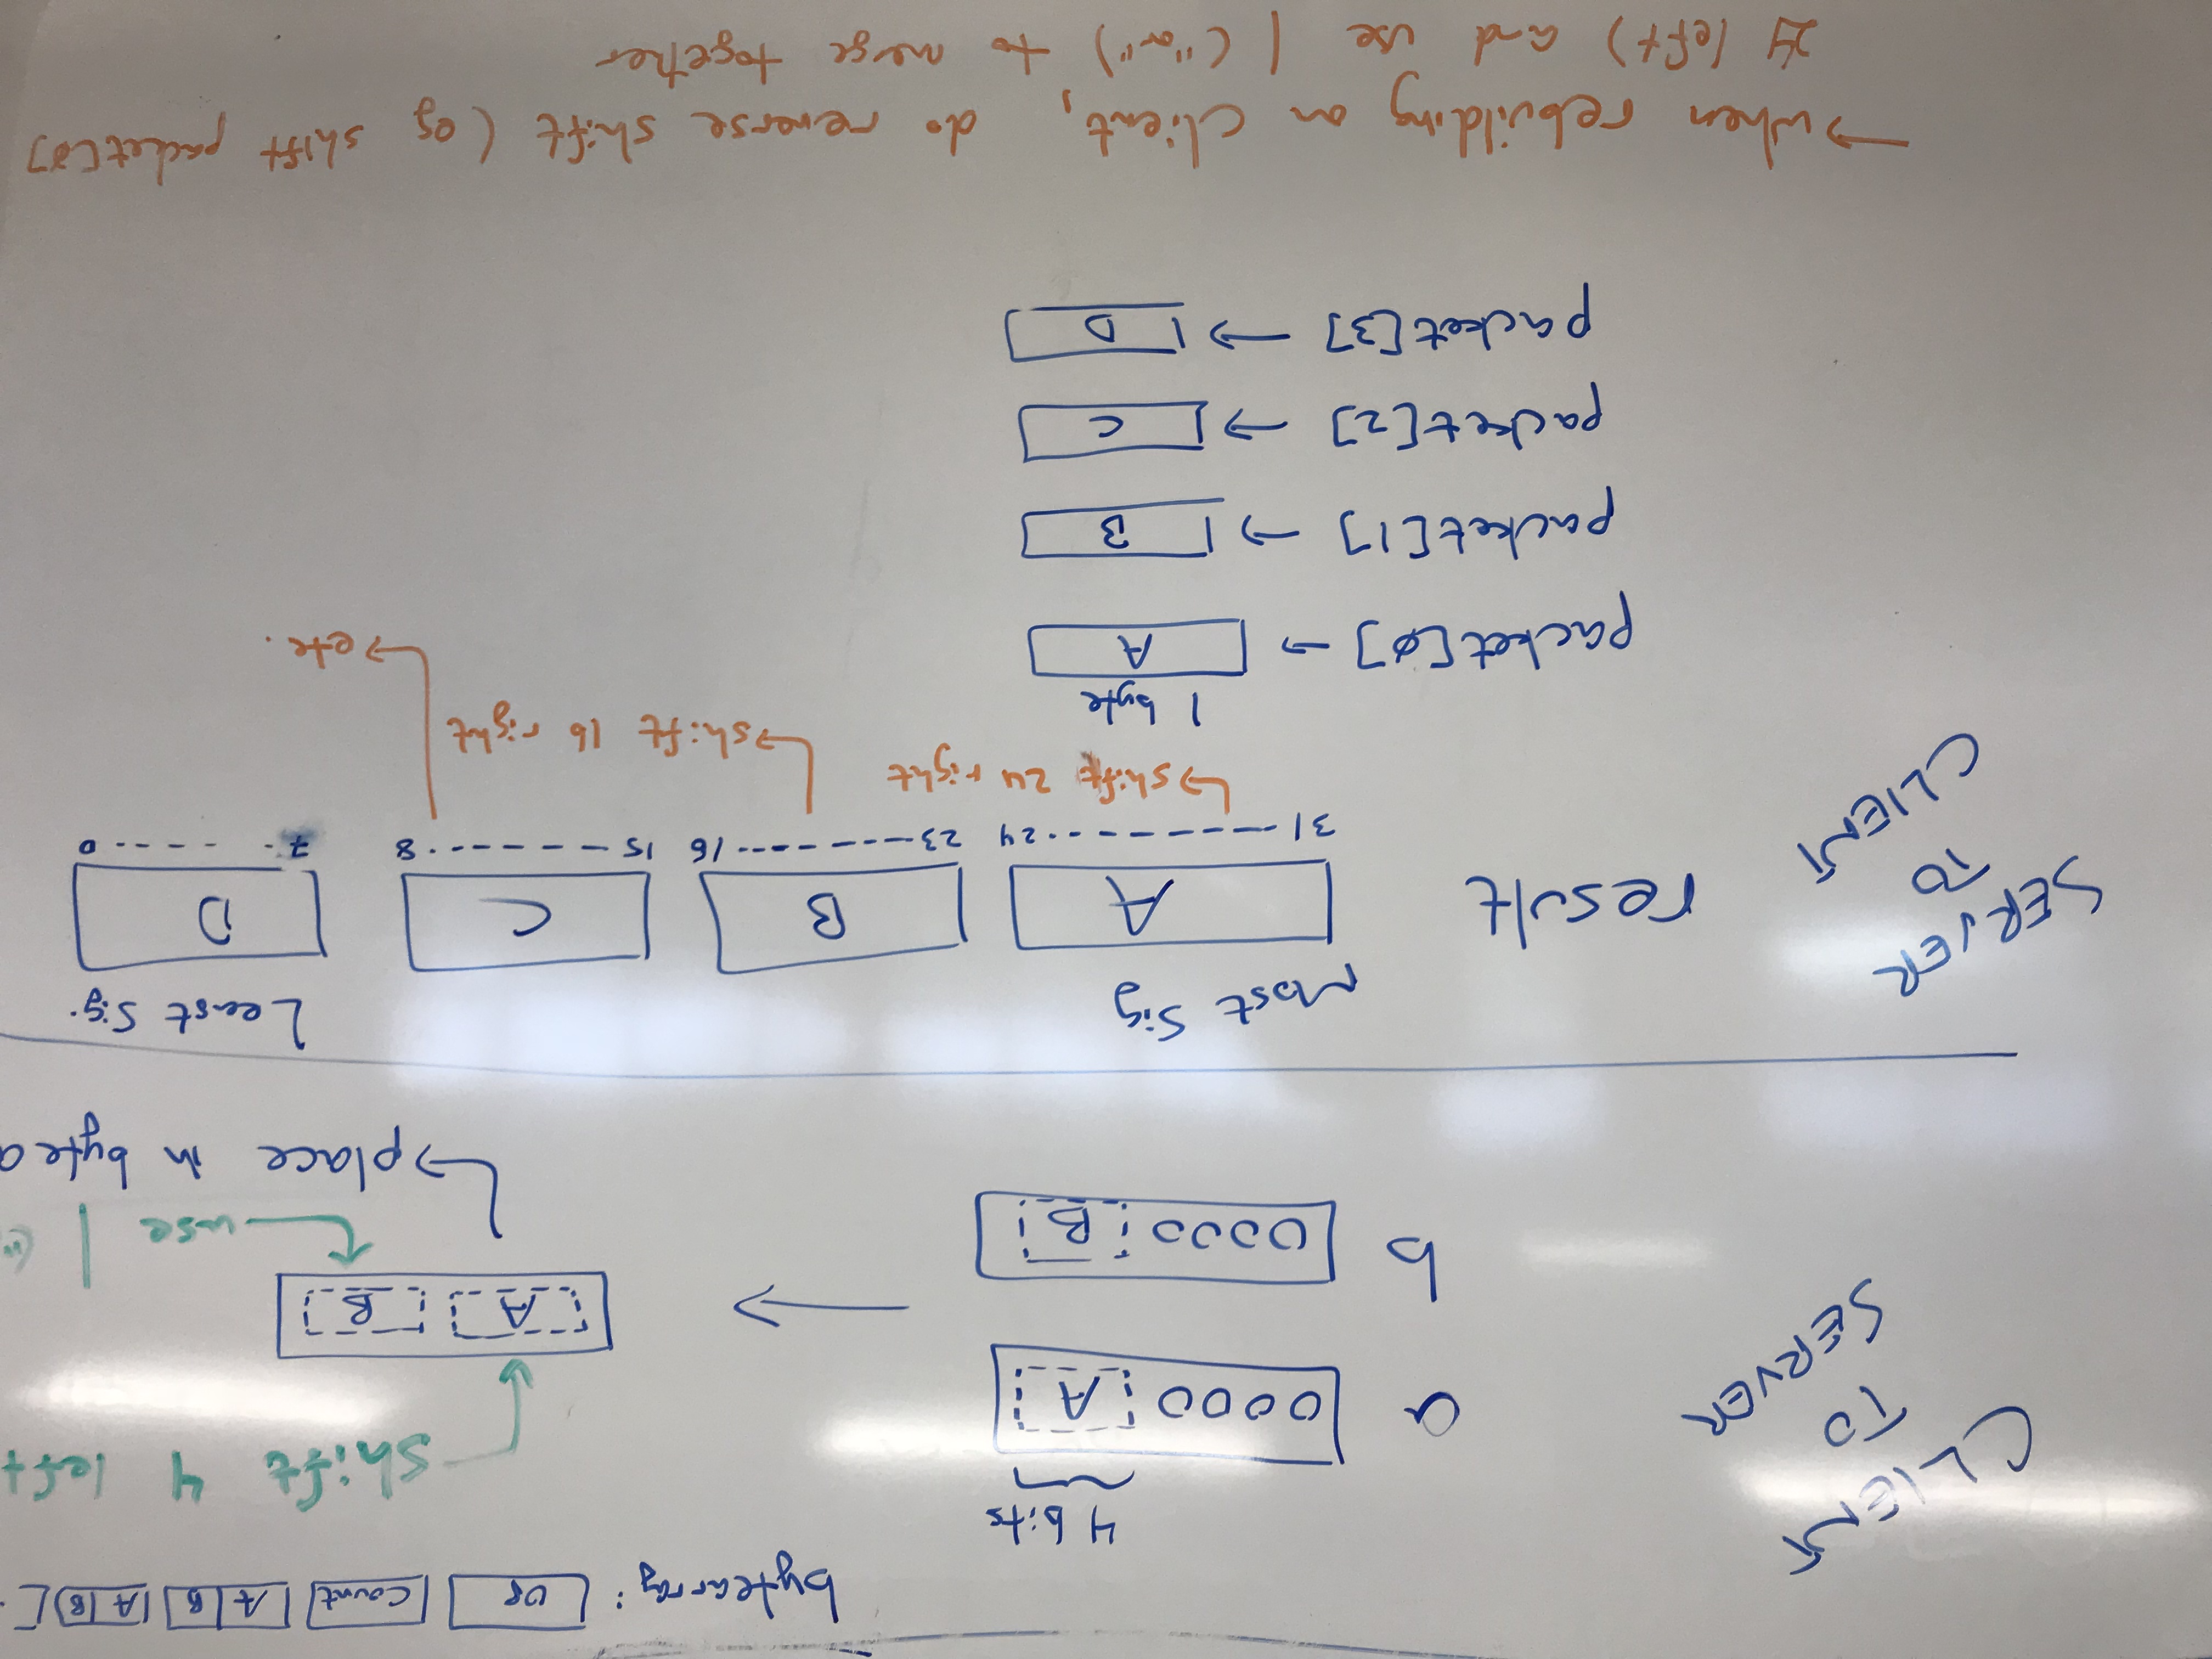 bytearray: OP Count A B A B
CLIENT
TO
SERVER
4 bits
shift 4 left
a 0000 A
A B
b 0000 B
use | ("
place in byte a
SERVER
TO
CLIENT
Most Sig
Least Sig.
result A B C D
31 24 23 16 15 8 7 0
shift 24 right
shift 16 right
etc.
1 byte
packet[0] → A
packet[1] → B
packet[2] → C
packet[3] → D
→ when rebuilding on client, do reverse shift (eg shift packet[0]
24 left) and use | ("or") to merge together